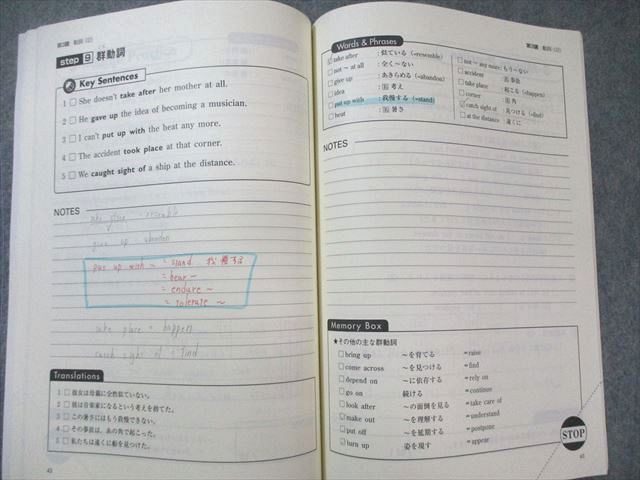 第3講 動詞 (2)
step 9 群動詞
Key Sentences
1 She doesn't take after her mother at all.
2 He gave up the idea of becoming a musician.
3 I can't put up with the heat any more.
4 The accident took place at that corner.
5 We caught sight of a ship at the distance.
NOTES
take place = resemble
give up abandon
put up with ~ = stand 我慢する
= bear ~
= endure ~
= tolerate ~
take place = happen
catch sight of = find
Translations
1 彼女は母親に全然似ていない。
2 彼は音楽家になるという考えを捨てた。
3 この暑さにはもう我慢できない。
4 その事故は、あの角で起こった。
5 私たちは遠くに船を見つけた。
Words & Phrases
take after : 似ている (=resemble)
not ~ at all : 全く~ない
give up : あきらめる (=abandon)
idea : 名 考え
put up with : 我慢する (=stand)
heat : 名 暑さ
第3講 動詞 (2)
not ~ any more : もう~ない
accident : 名 事故
take place : 起こる (=happen)
corner : 名 角
catch sight of : 見つける (=find)
at the distance : 遠くに
NOTES
Memory Box
★その他の主な群動詞
bring up ~を育てる =raise
come across ~を見つける =find
depend on ~に依存する =rely on
go on 続ける =continue
look after ~の面倒を見る =take care of
make out ~を理解する =understand
put off ~を延期する =postpone
turn up 姿を現す =appear
STOP